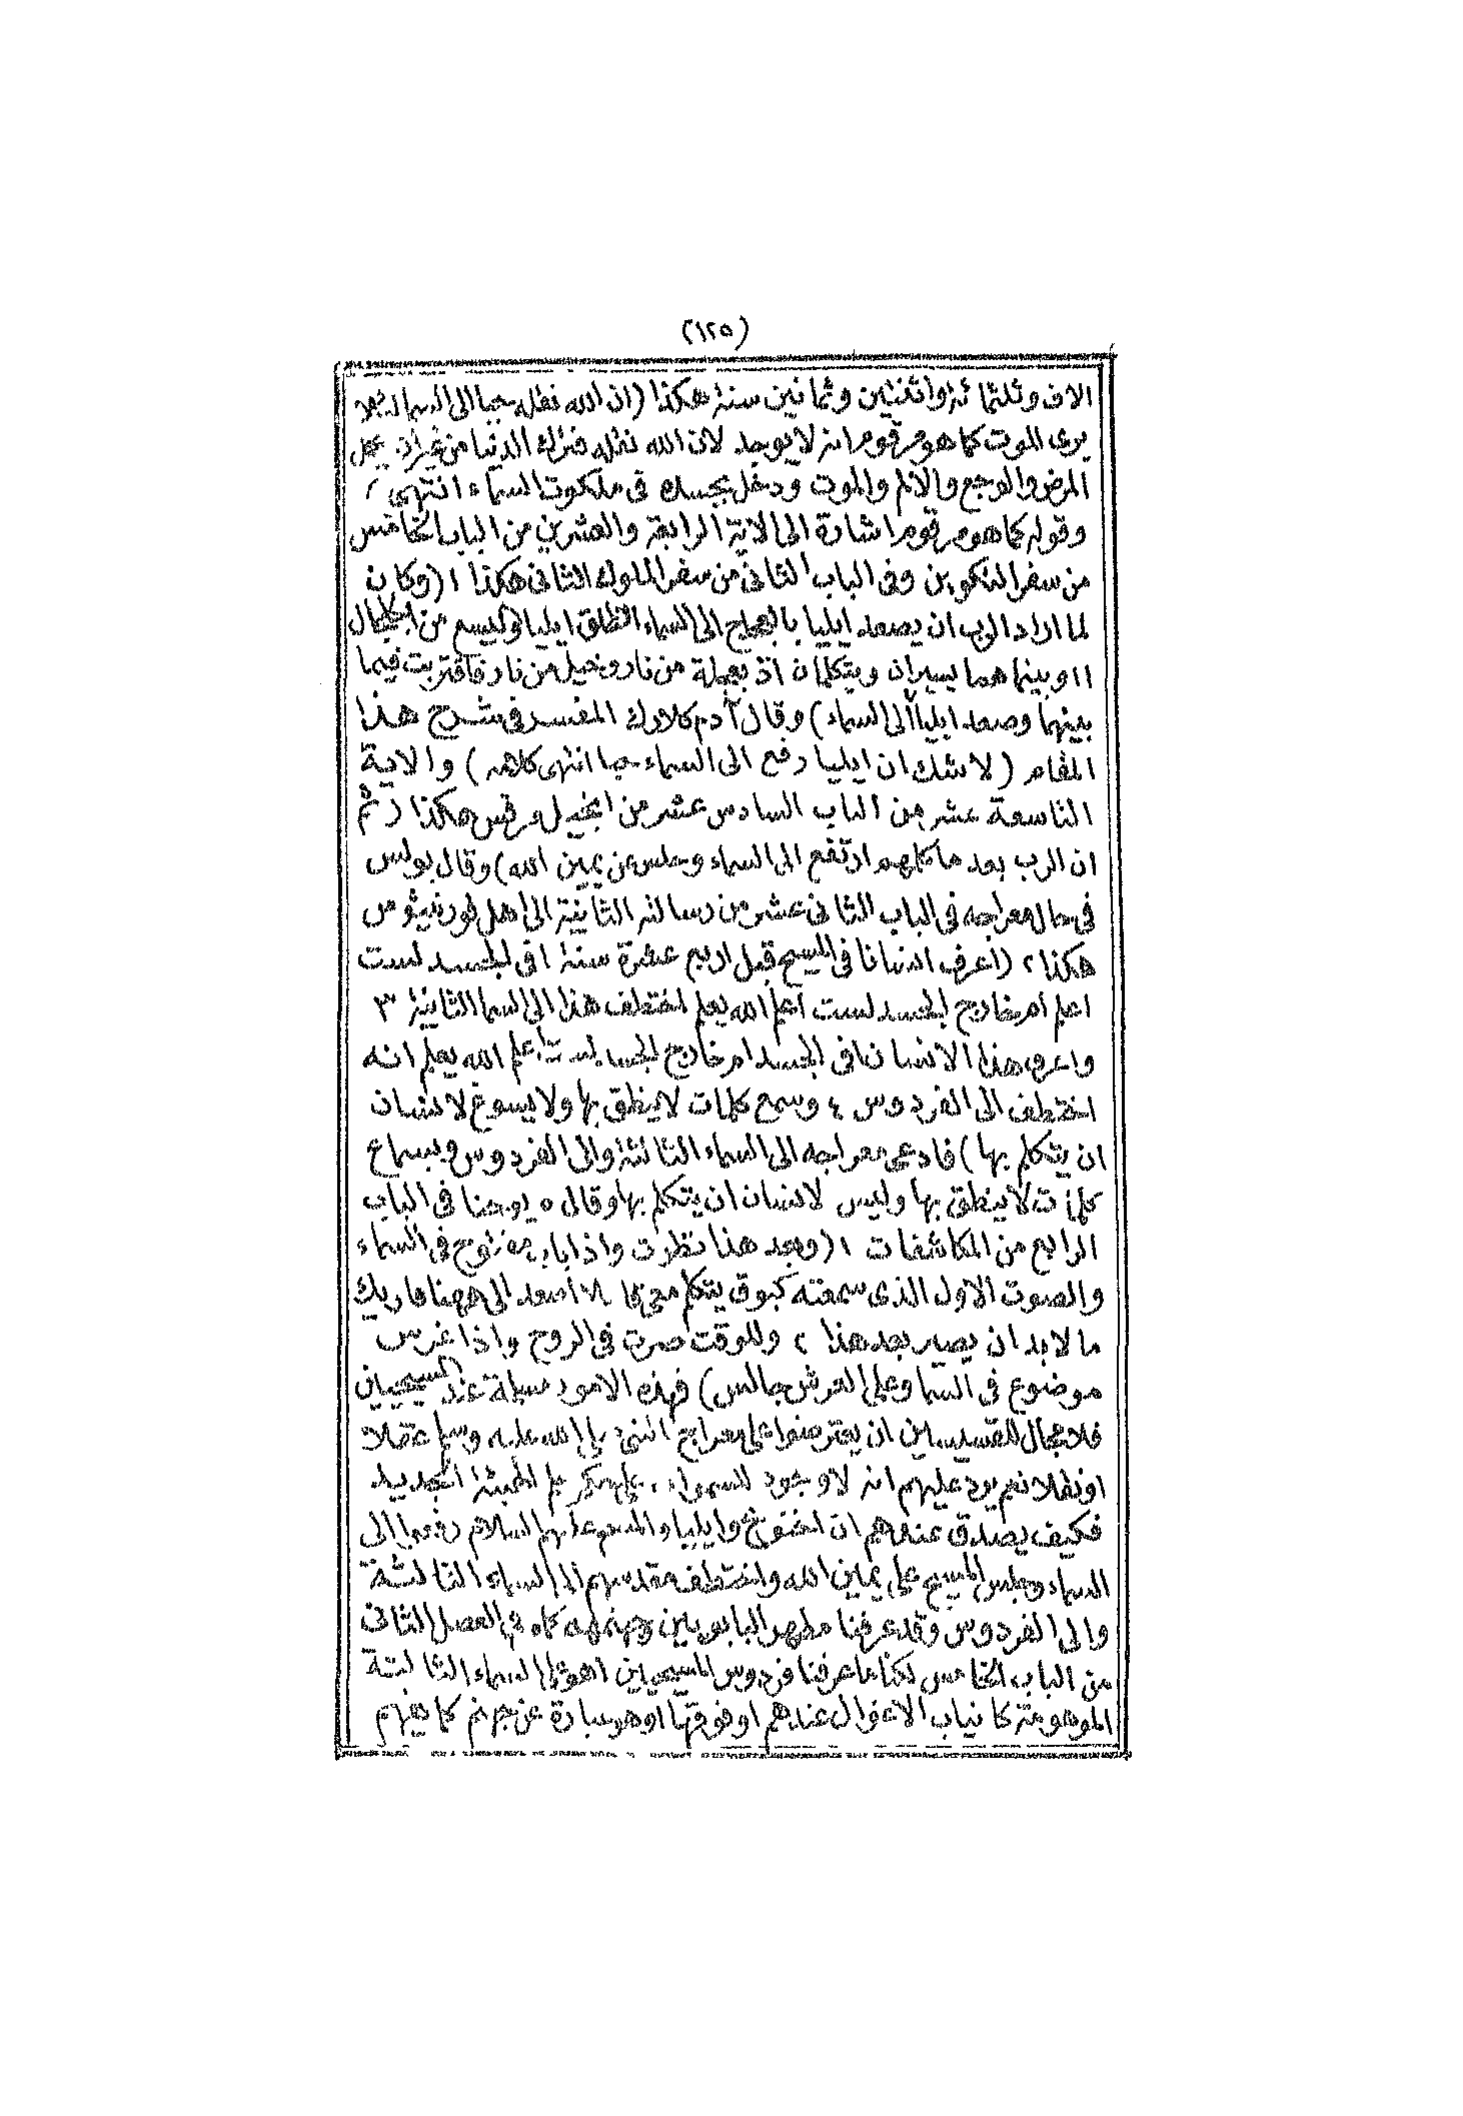 (١٢٥)
الاف وثلثمائة واثنتين وثمانين سنة هكذا (ان الله نقله حيا الى السماء لئلا
يرى الموت كما هو مرقوم انه لا يوجد لان الله نقله فترك الدنيا من غير ان يحمل
المرض والوجع والالم والموت ودخل بجسده فى ملكوت السماء انتهى)
وقوله كما هو مرقوم اشارة الى الاية الرابعة والعشرين من الباب الخامس
من سفر التكوين وفى الباب الثانى من سفر الملوك الثانى هكذا ١ (وكان
لما اراد الرب ان يصعد ايليا بالعجاج الى السماء انطلق ايليا واليسع من الجلجال
١١ وبينما هما يسيران ويتكلمان اذ بعجلة من نار وخيل من نار فافتربت فيما
بينهما وصعد ايليا الى السماء) وقال آدم كلارك المفسر فى شرح هذا
المقام (لا شك ان ايليا رفع الى السماء حيا انتهى كلامه) والاية
التاسعة عشر من الباب السادس عشر من انجيل مرقس هكذا (ثم
ان الرب بعد ما كلهم ارتفع الى السماء وجلس عن يمين الله) وقال بولس
فى حال معراجه فى الباب الثانى عشر من رسالته الثانية الى اهل قورنيثوس
هكذا ٢ (اعرف انسانا فى المسيح قبل اربع عشرة سنة افى الجسد لست
اعلم ام خارج الجسد لست اعلم الله يعلم اختطف هذا الى السما الثانية ٣
واعرف هذا الانسان افى الجسد ام خارج الجسد لست اعلم الله يعلم انه
اختطف الى الفردوس ٤ وسمع كلمات لا ينطق بها ولا يسوغ لانسان
ان يتكلم بها) فادعى معراجه الى السماء الثالثة والى الفردوس وبسماع
كلمات لا ينطق بها وليس لانسان ان يتكلم بها وقال ٥ يوحنا فى الباب
الرابع من المكاشفات ١ (وبعد هذا نظرت واذا باب مفتوح فى السماء
والصوت الاول الذى سمعته كبوق يتكلم معى قائلا اصعد الى ههنا فاريك
ما لا بد ان يصير بعد هذا ٢ وللوقت صرت فى الروح واذا عرش
موضوع فى السما وعلى العرش جالس) فهذه الامور مسلمة عند المسيحيين
فلا مجال للقسيسين ان يعترضوا على معراج النبى صلى الله عليه وسلم عقلا
او نقلا نعم يرد عليهم انه لا وجود للسموات على حكم علم الهيئة الجديد
فكيف يصدق عندهم ان اخنوخ وايليا والمسيح عليهم السلام رفعوا الى
السماء وجلس المسيح على يمين الله واختطف مقدسهم الى السماء الثالثة
والى الفردوس وقد عرفنا مطهر البابويين وجهنمه كما فى الفصل الثانى
من الباب الخامس لكنا ما عرفنا فردوس المسيحيين اهو على السماء الثالثة
الموهومة كانياب الاغوال عندهم او فوقها او هو عبارة عن جهنم كما يفهم